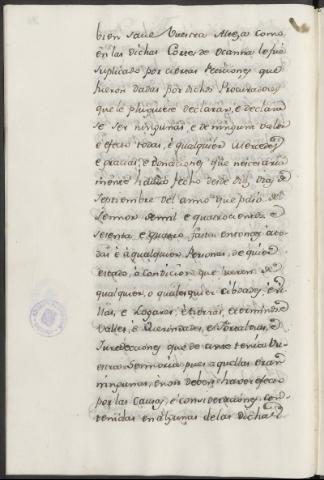 bien save Vuestra Alteza como
en las dichas Cortes de Ocanna le fue
suplicado por ciertas Peticiones que
fueron dadas por dichos Procuradores
que le pluguiese declarar, e declara
se ser ningunas, e de ningun valor
e efecto todas, e qualquier Mercedes
e gracias, e donaciones que
mente fecho desde diez dias de
Septiembre del anno que pasó del
Sennor de mil e quatrocientos e
setenta e quatro fasta entonces a to
das e á qualquier Personas, de quier
estado, o condicion que fueran de
qualquier, o qualesquier cibdades, e vi
llas, e Logares, e tierras, e terminos e
Valles, e Merindades, e Fortalezas, e
Juredecciones que de ante tenia Vu
estra Sennoria, pues aquellas eran
ningunas, e non deben haver efecto
por las Causas, e consideraciones con
tenidas en algunas de las dichas